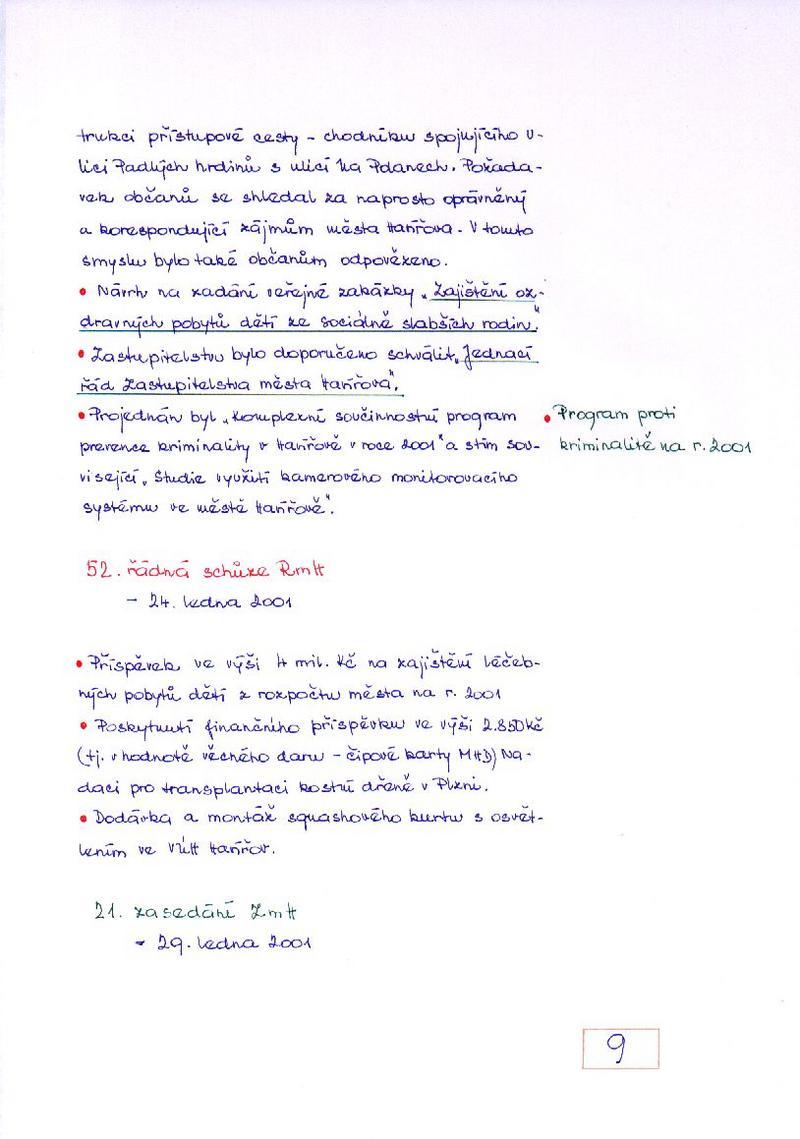 trukci přístupové cesty - chodníku spojujícího u-
lici Padlých hrdinů s ulicí Na Pdanech. Požada-
vek občanů se shledal za naprosto oprávněný
a korespondující zájmům města Havířova. V tomto
smyslu bylo také občanům odpovězeno.
• Návrh na zadání veřejné zakázky „Zajištění oz-
dravných pobytů dětí ze sociálně slabších rodin."
• Zastupitelstvu bylo doporučeno schválit „Jednací
řád Zastupitelstva města Havířova".
• Projednán byl „Komplexní součinnostní program
prevence kriminality v Havířově v roce 2001" a s tím sou-
visející „Studie využití kamerového monitorovacího
systému ve městě Havířově".
• Program proti
kriminalitě na r. 2001
52. řádná schůze RmH
- 24. ledna 2001
• Příspěvek ve výši 4 mil. Kč na zajištění léčeb-
ných pobytů dětí z rozpočtu města na r. 2001
• Poskytnutí finančního příspěvku ve výši 2.850 Kč
(tj. v hodnotě věcného daru - čipové karty MHD) Na-
daci pro transplantaci kostní dřeně v Plzni.
• Dodávka a montáž squashového kurtu s osvět-
lením ve VÚH Havířov.
21. zasedání ZmH
- 29. ledna 2001
9